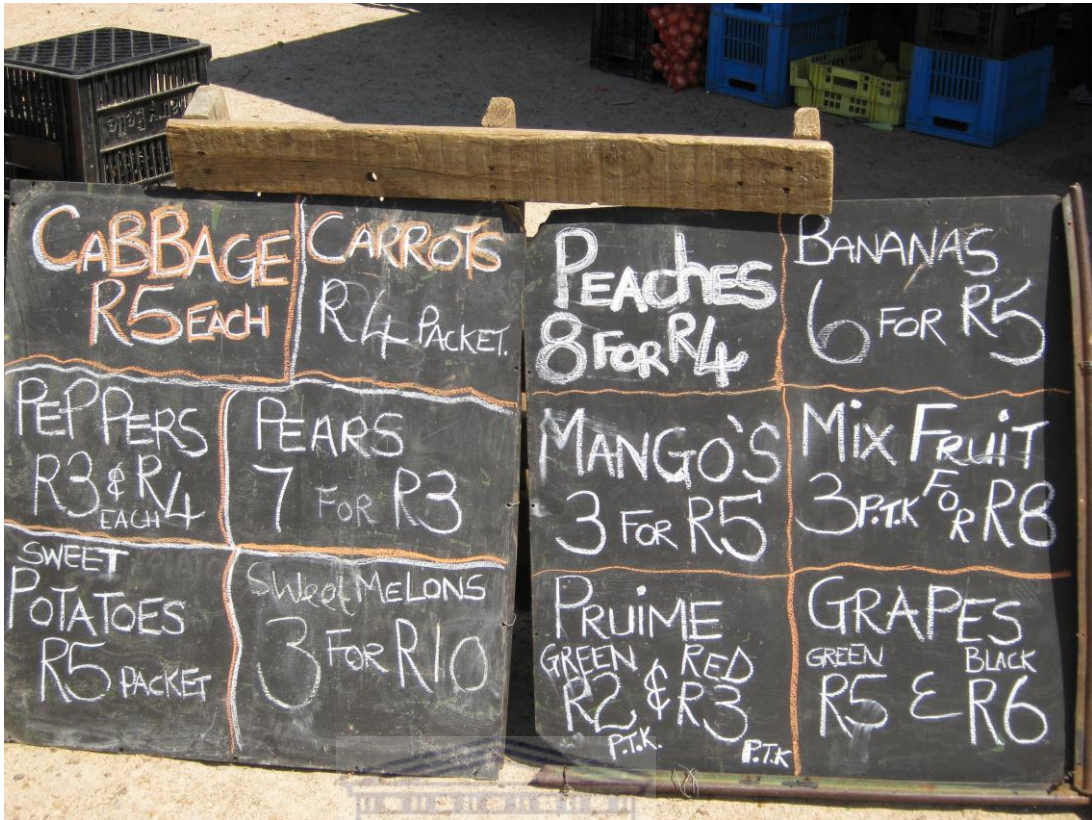 CABBAGE
R5 EACH
CARROTS
R4 PACKET.
PEPPERS
R3 & R4
EACH
PEARS
7 FOR R3
SWEET
POTATOES
R5 PACKET
Sweet MELONS
3 FOR R10
PEACHES
8 FOR R4
BANANAS
6 FOR R5
MANGO'S
3 FOR R5
MIX FRUIT
3 P.T.K FOR R8
PRUIME
GREEN RED
R2 & R3
P.T.K. P.T.K
GRAPES
GREEN BLACK
R5 & R6